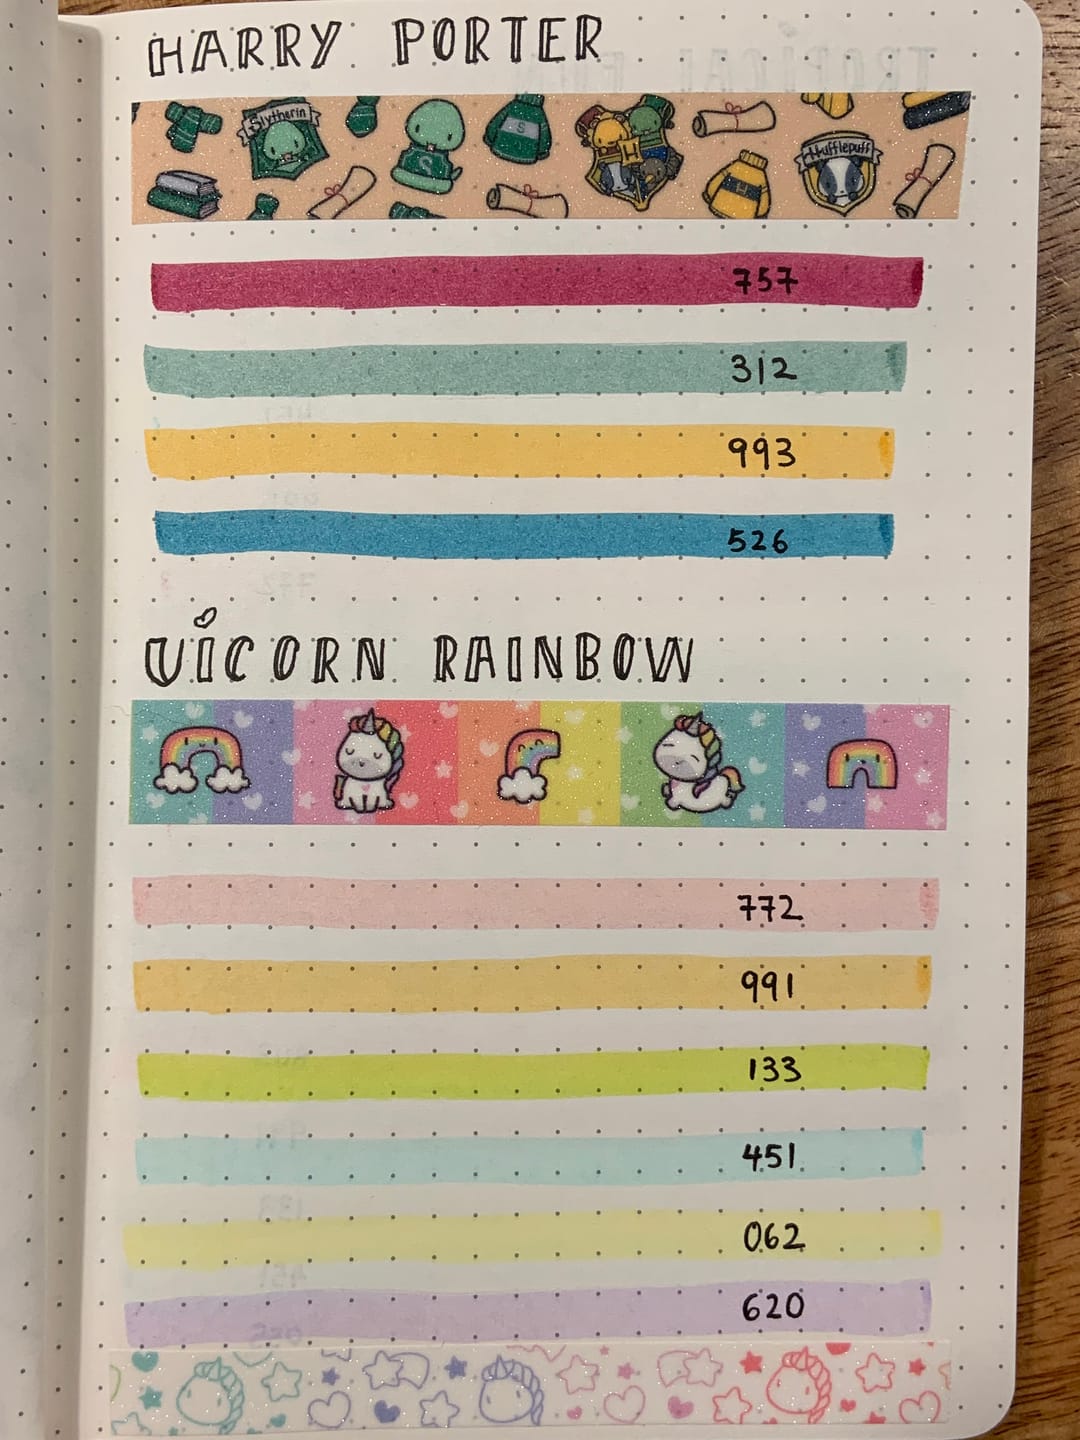 HARRY PORTER
Slytherin
S
S
H
Hufflepuff
757
312
993
526
UICORN RAINBOW
772
991
133
451
062
620